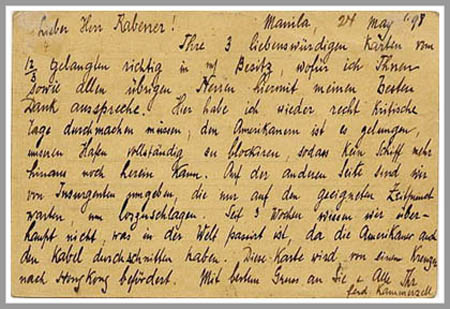 Lieber Herr Kaberrer! Manila, 24 May '98
Ihre 3 liebenswürdigen Karten vom
12/3 gelangten richtig in m/ Besitz, wofür ich Ihnen
sowie allen übrigen Herren hiermit meinen besten
Dank ausspreche. Hier habe ich wieder recht kritische
Tage durchmachen müssen, den Amerikanern ist es gelungen,
unseren Hafen vollständig zu blockiren, sodass kein Schiff mehr
hinaus noch herein kann. Auf der anderen Seite sind wir
von Insurgenten umgeben, die nur auf den geeigneten Zeitpunct
warten um loszuschlagen. Seit 3 Wochen wissen wir über-
haupt nicht, was in der Welt passirt ist, da die Amerikaner auch
den Kabel durchschnitten haben. Diese Karte wird von einem Kreuzer
nach HongKong befördert. Mit bestem Gruss an Sie + Alle Ihr
ferd. Kammerzell